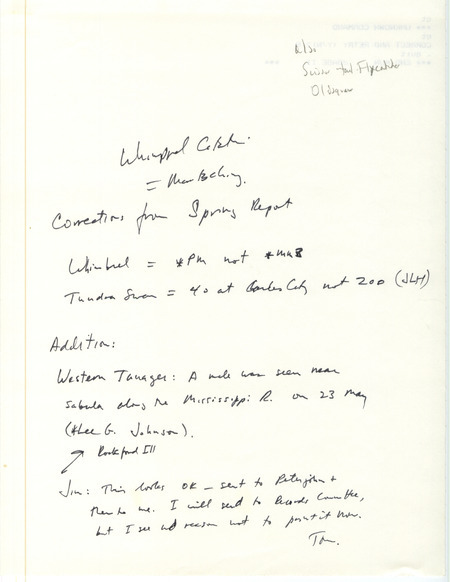 Also
Scissor-tail Flycatcher
Oldsquaw
= Mark
Corrections from Spring Report
Whimbrel = *PM not *
Tundra Swan = 40 at City not 200 (JLH)
Addition:
Western Tanager: A male was seen near
Sabula along the Mississippi R. on 23 May
(*Lee G. Johnson).
Rockford Ill
Jim: This looks OK – sent to Peterjohn +
then to me. I will send to Records Committee,
but I see no reason not to print it now.
Tom.